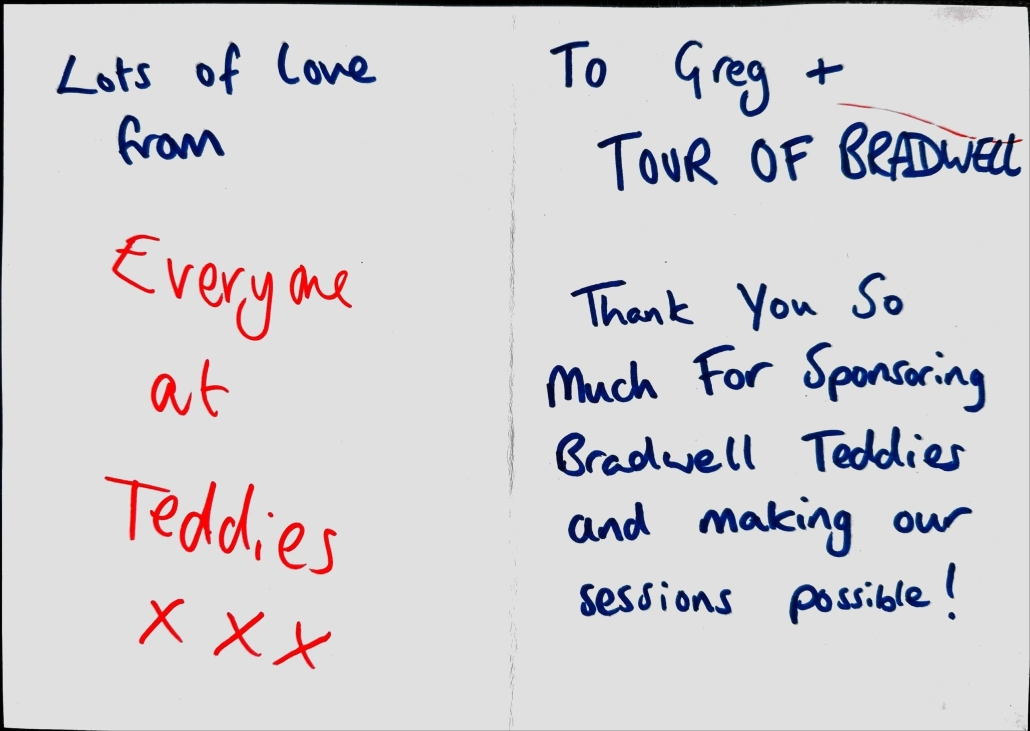 Lots of love
from
Everyone
at
Teddies
x x x
To Greg +
TOUR OF BRADWELL
Thank You So
Much For Sponsoring
Bradwell Teddies
and making our
sessions possible!